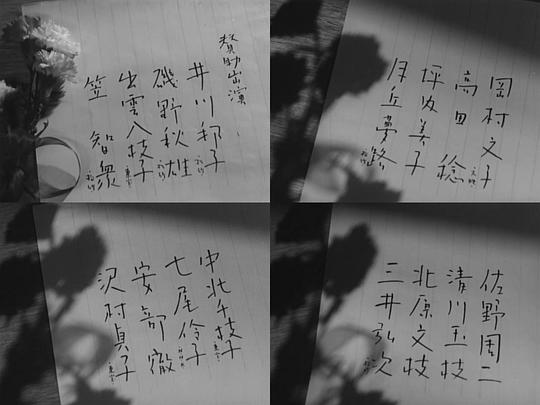 賛助出演
井川邦子
磯野秋雄
出雲八枝子
笠智衆
岡村文子
高田稔
坪内美子
月丘夢路
中北千枝子
七尾伶子
安部徹
沢村貞子
佐野周二
清川玉枝
北原文枝
三井弘次